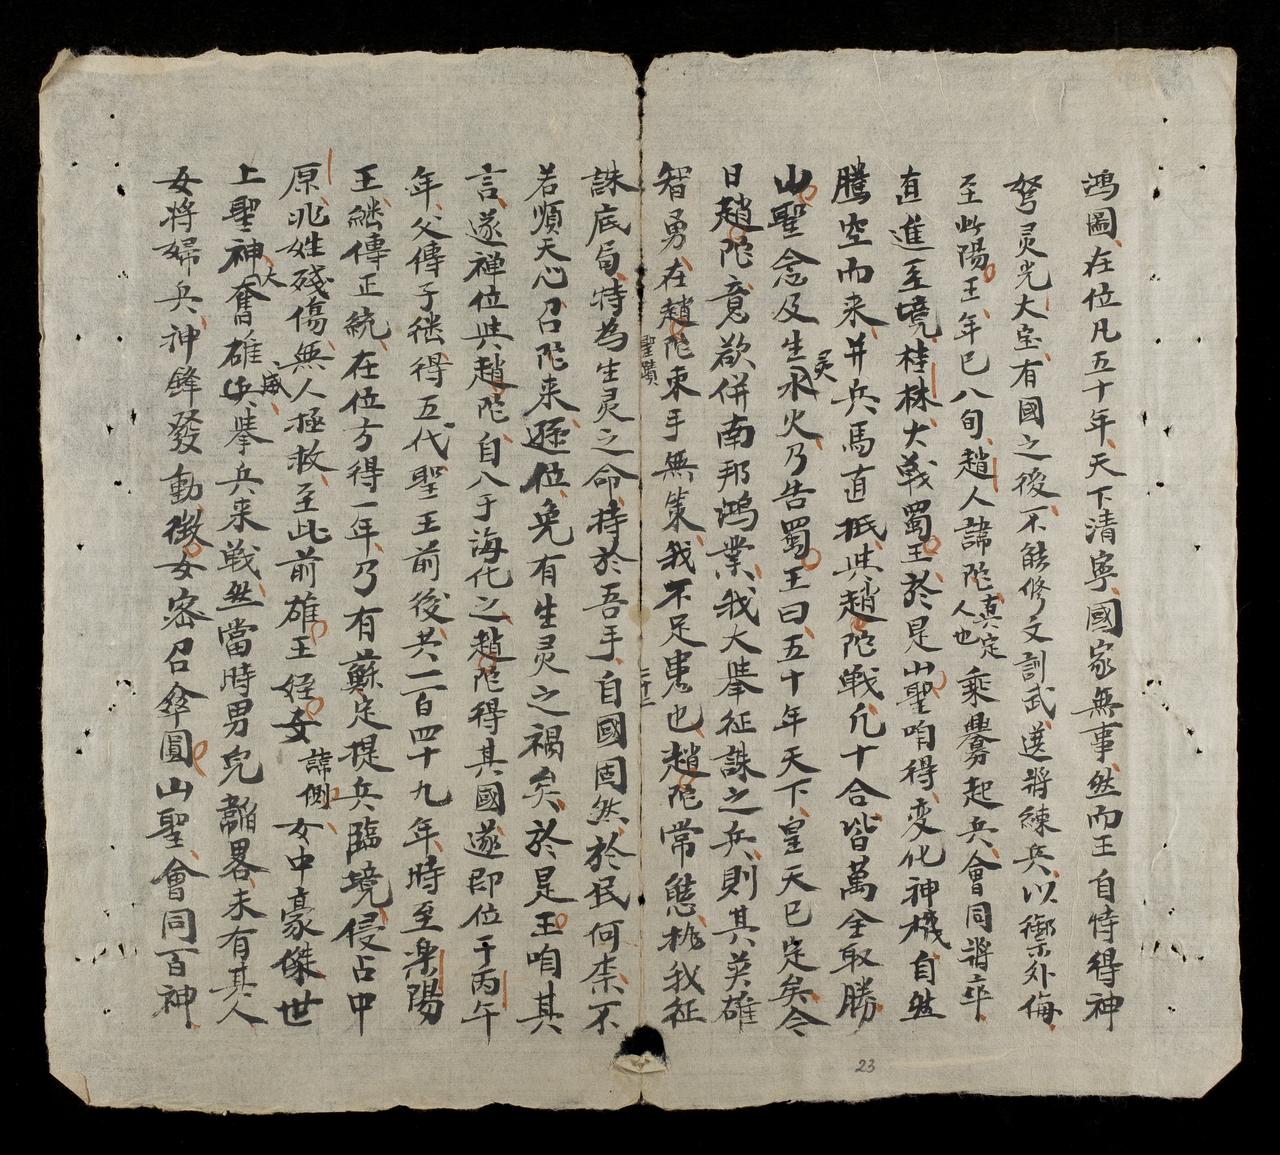 鴻圖在位凡五十年天下清寧國家無事然而王自恃得神
弩灵光大宝有國之後不能修文訓武选將練兵以禦外侮
至此陽王年已八旬趙人諱陀真定人也乘舋起兵會同將卒
直進至境桂林大戦蜀王於是山聖咱得变化神機自然
騰空而来并兵馬直抵共趙陀戰凢十合皆萬全取勝
山聖念及生灵水火乃告蜀王曰五十年天下皇天已定矣今
日趙陀意欲併南邦鴻業我大舉征誅之兵則其英雄
智勇在趙陀束手無策我不足患也趙陀常態挑我征
聖蹟
二十三
誅底局特為生灵之命持於吾手自國固然於民何柰不
若順天心召陀来遜位免有生灵之禍矣於是王咱其
言遂禅位共趙陀自入于海化之趙陀得其國遂即位于丙午
年父傳子継得五代聖王前後共二百四十九年時至乐陽
王継傳正統在位方得一年乃有蘇定提兵臨境侵占中
原兆姓殘傷無人極救至此前雄王姪女諱側女中豪傑世
上聖神大奮雄威舉兵来战然當時男兒韜畧未有其人
女將婦兵神鋒發動徵女密召傘圓山聖會同百神
23